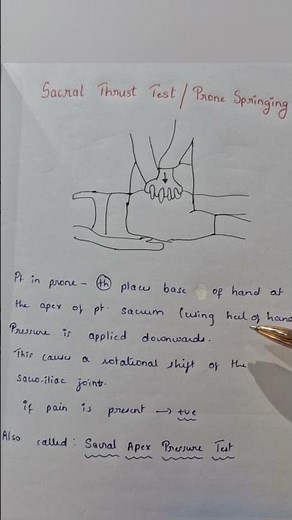 Sacral Thrust Test / Prone Springing
Pt in prone - th place base of hand at
the apex of pt. sacrum (using heel of hand
Pressure is applied downwards.
This causes a rotational shift of the
sacro-iliac joints.
if pain is present → +ve
Also called : Sacral Apex Pressure Test